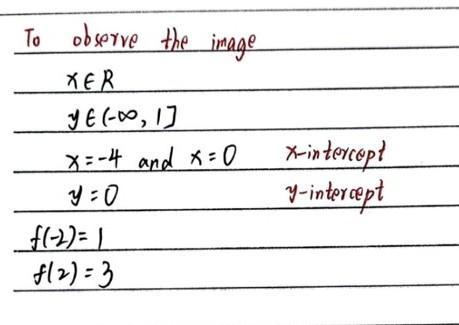 To observe the image
x∈R
y∈(-∞, 1]
x=-4 and x=0 x-intercept
y=0 y-intercept
f(-2)=1
f(2)=3